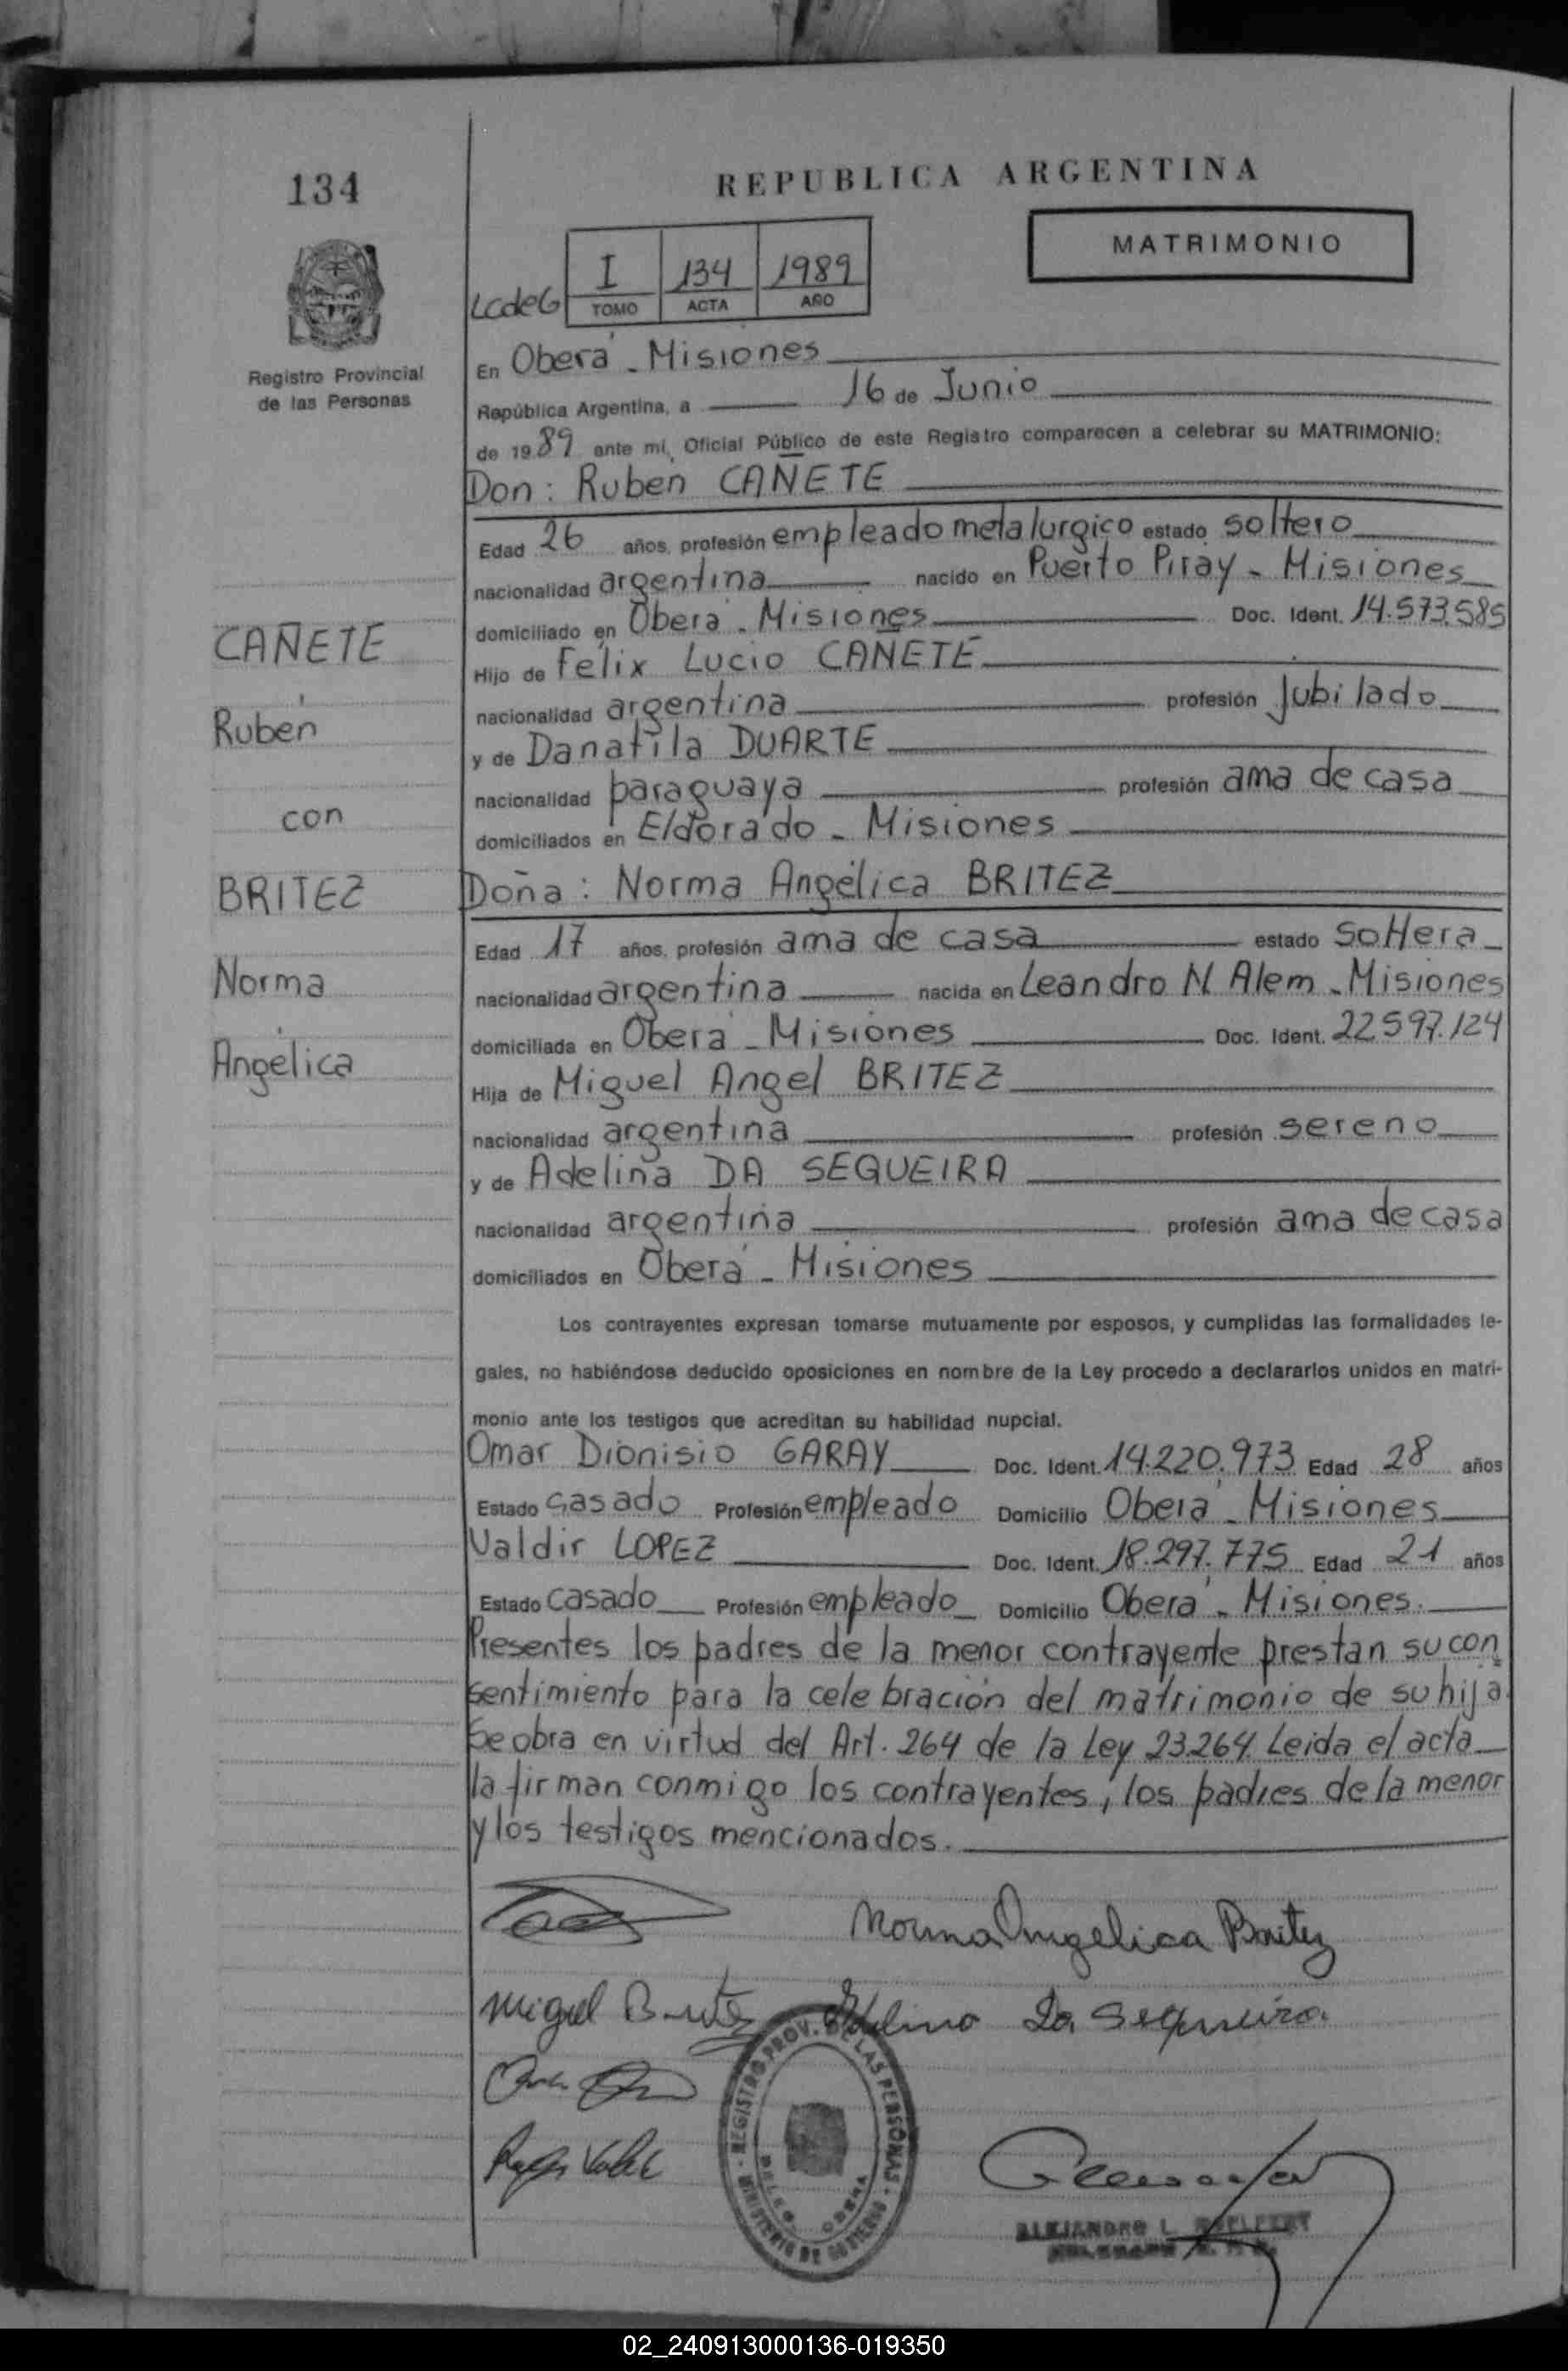 134
REPUBLICA ARGENTINA
MATRIMONIO
LCdeG
I 134 1989
TOMO ACTA AÑO
Registro Provincial
de las Personas
En Oberá - Misiones
República Argentina, a 16 de Junio
de 1989 ante mí, Oficial Público de este Registro comparecen a celebrar su MATRIMONIO:
Don: Rubén CAÑETE
Edad 26 años, profesión empleado metalurgico estado soltero
nacionalidad argentina nacido en Puerto Piray - Misiones
domiciliado en Oberá - Misiones Doc. Ident. 14.573.585
Hijo de Félix Lucio CAÑETE
nacionalidad argentina profesión jubilado
y de Danatila DUARTE
nacionalidad paraguaya profesión ama de casa
domiciliados en Eldorado - Misiones
Doña: Norma Angélica BRITEZ
Edad 17 años, profesión ama de casa estado soltera
nacionalidad argentina nacida en Leandro N Alem - Misiones
domiciliada en Oberá - Misiones Doc. Ident. 22.597.124
Hija de Miguel Angel BRITEZ
nacionalidad argentina profesión sereno
y de Adelina DA SEQUEIRA
nacionalidad argentina profesión ama de casa
domiciliados en Oberá - Misiones
CAÑETE
Rubén
con
BRITEZ
Norma
Angélica
Los contrayentes expresan tomarse mutuamente por esposos, y cumplidas las formalidades le-
gales, no habiéndose deducido oposiciones en nombre de la Ley procedo a declararlos unidos en matri-
monio ante los testigos que acreditan su habilidad nupcial.
Omar Dionisio GARAY Doc. Ident. 14.220.973 Edad 28 años
Estado casado Profesión empleado Domicilio Oberá - Misiones
Valdir LOPEZ Doc. Ident. 18.297.775 Edad 21 años
Estado casado Profesión empleado Domicilio Oberá - Misiones.
Presentes los padres de la menor contrayente prestan su con
sentimiento para la celebración del matrimonio de su hija.
Se obra en virtud del Art. 264 de la Ley 23.264. Leida el acta
la firman conmigo los contrayentes, los padres de la menor
y los testigos mencionados.
Norma Angelica Britez
Miguel Britez Adelina Da Sequeira
REGISTRO PROV. DE LAS PERSONAS
MINISTERIO DE GOBIERNO
ALEJANDRO L.
02_240913000136-019350